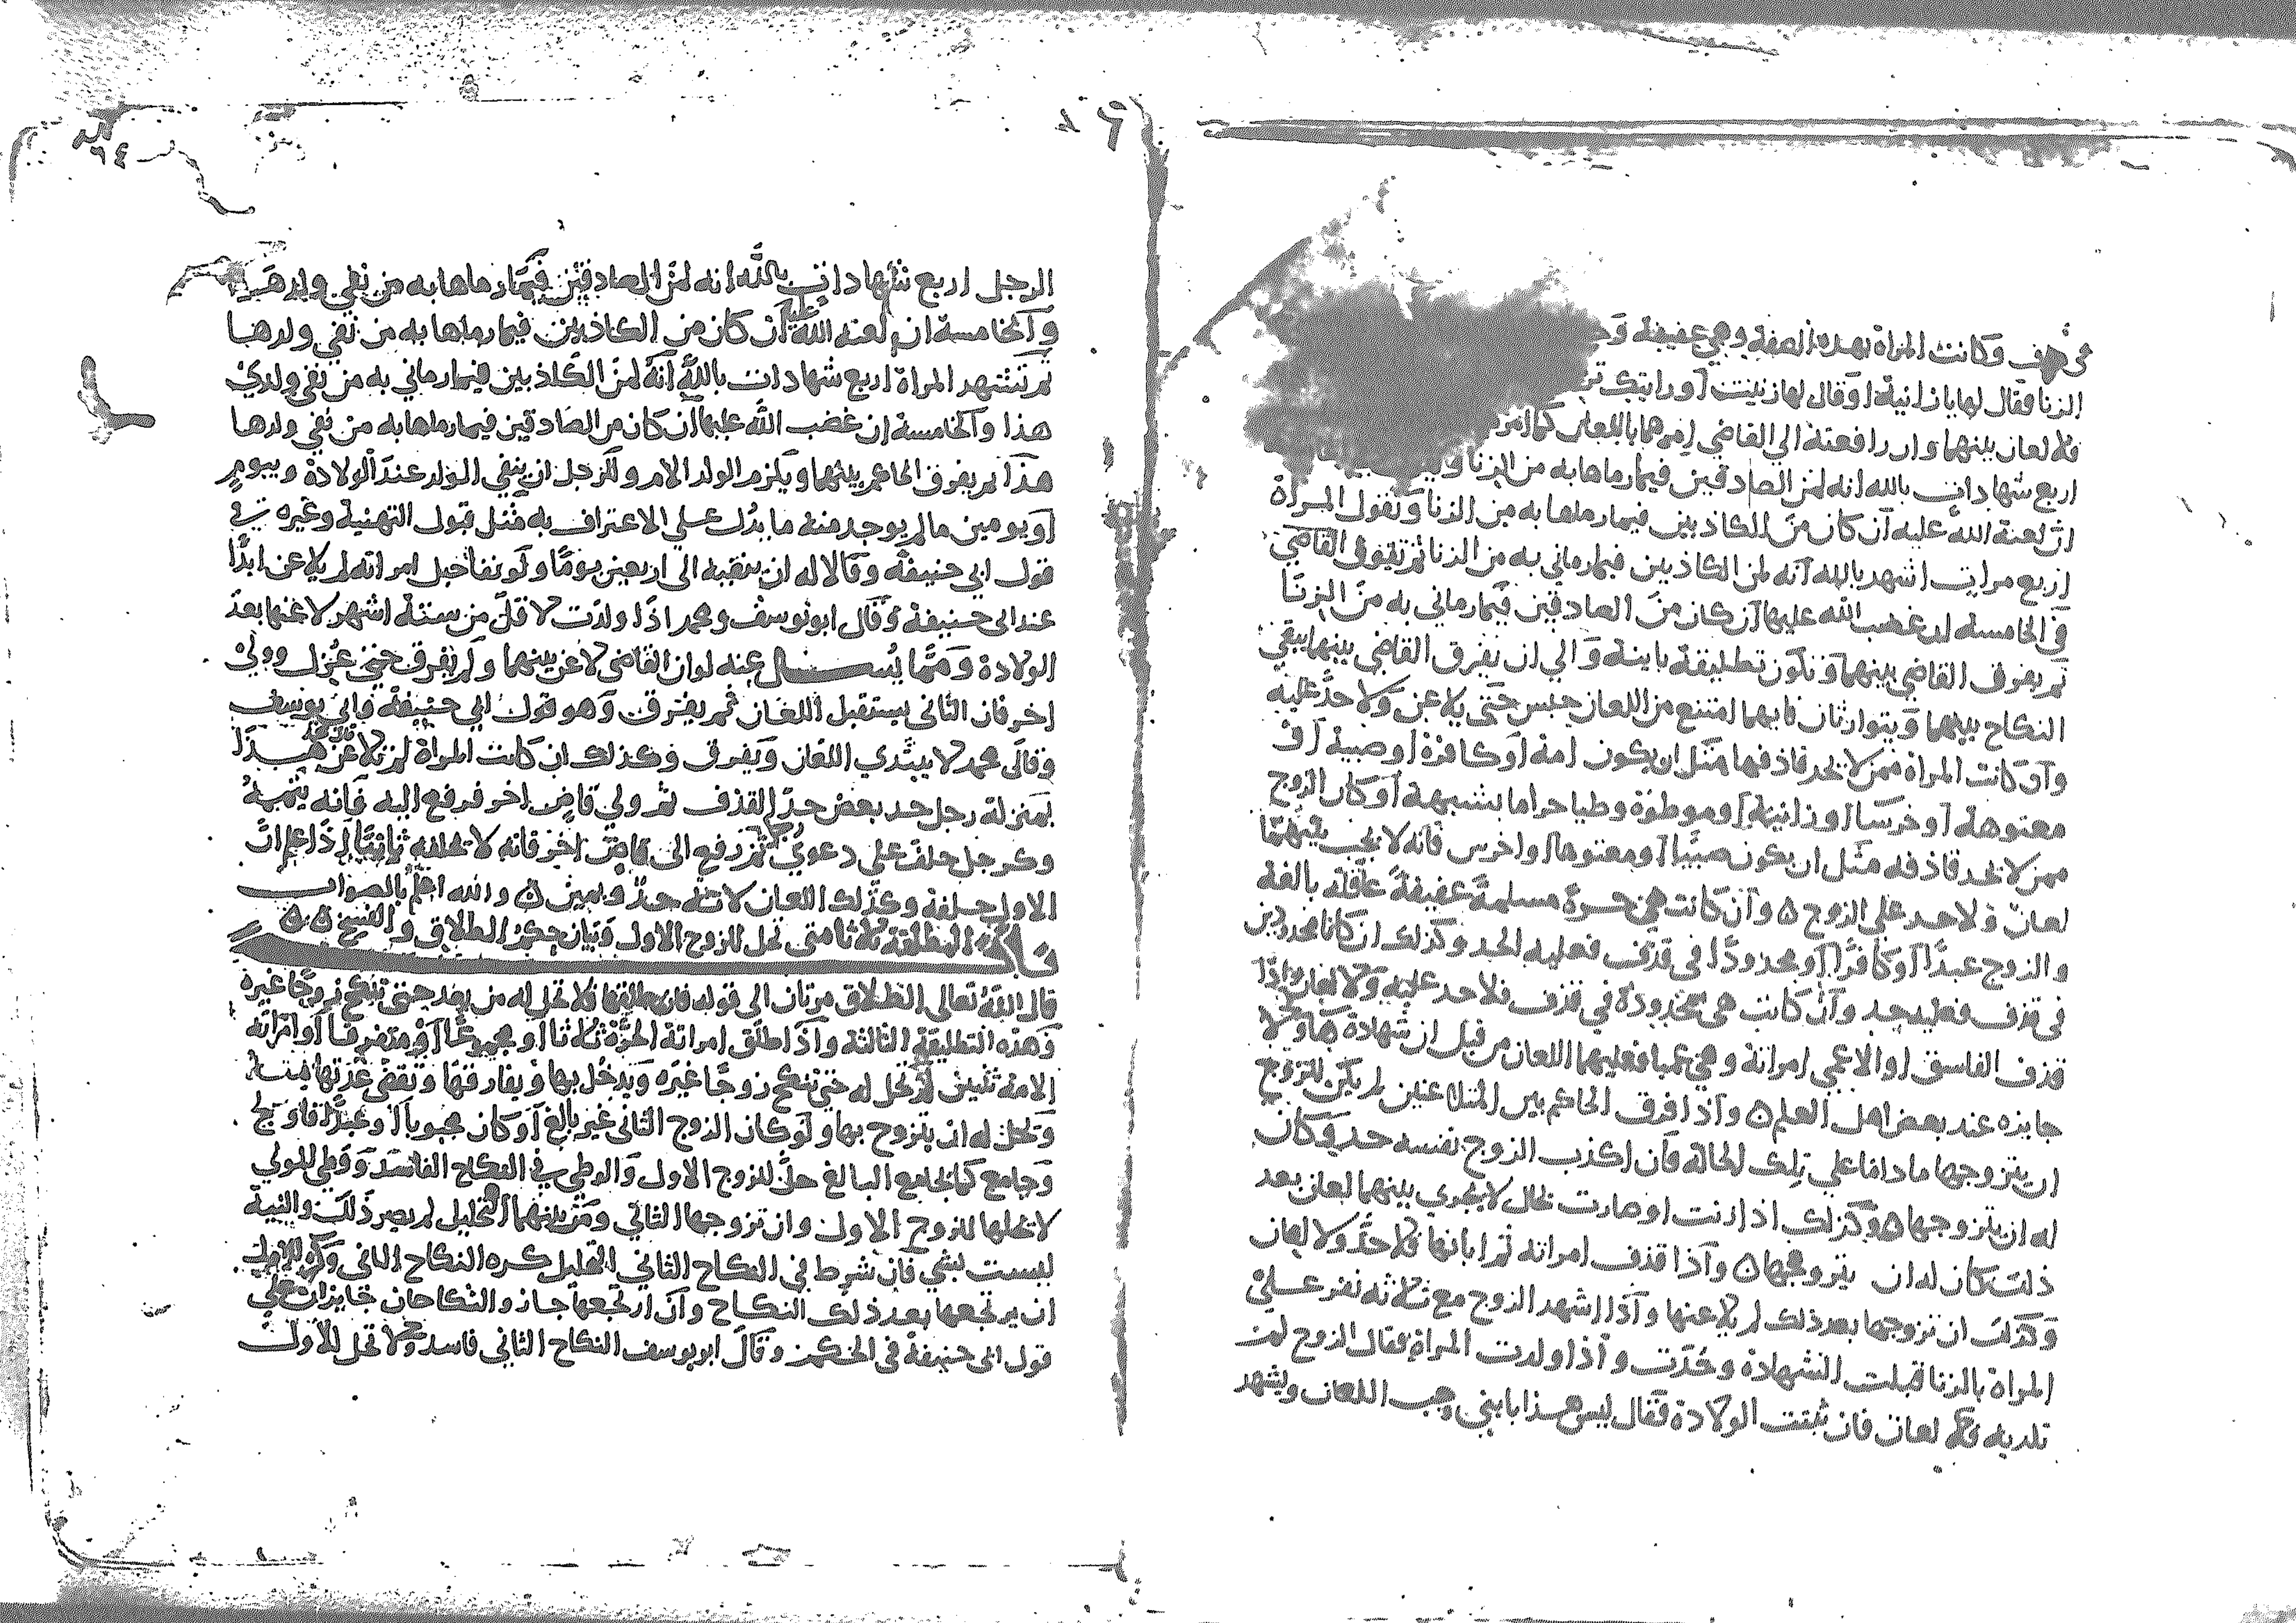 في قذف وكانت المراة بهذه الصفة وهي عفيفة
الزنا فقال لها يا زانية اوقال لها زنيت او رايتك
فلا لعان بينهما وان رافعته الي القاضي امرهما باللعان كما امر
اربع شهادات بالله انه لمن الصادقين فيما رماها به من الزنا
ان لعنة الله عليه ان كان من الكاذبين فيما رماها به من الزنا وتقول المراة
اربع مرات اشهد بالله انه لمن الكاذبين فيما رماني به من الزنا ثم تقول القاضي
في الخامسة ان غضب الله عليها ان كان من الصادقين فيما رماني به من الزنا
ثم يفرق القاضي بينهما وتكون تطليقة باينة والي ان يفرق القاضي بينهما يبقي
النكاح بينهما ويتوارثان فايهما امتنع من اللعان حبس حتى يلاعن ولا حد عليه
وان كانت المراة ممن لا يحد قاذفها مثل ان يكون امة اوكافرة اوصبية او
معتوهة اوخرسا اوزانية اوموطؤة وطيا حراما بشبهة اوكان الزوج
ممن لا يحد قاذفه مثل ان يكون صبيا اومعتوها واخرس فانه لا يجب بينهما
لعان ولا حد على الزوج ه وان كانت هي حرة مسلمة عفيفة عاقلة بالغة
والزوج عبدا اوكافرا اومحدودا في قذف فعليه الحد وكذلك ان كانا محدودين
في قذف فعليه حد وان كانت هي محدودة في قذف فلا حد عليه ولا لعان واذا
قذف الفاسق اوالاعمى امراته وهي عميا فعليهما اللعان من قبل ان شهادة
جايزه عند بعض اهل العلم ه واذا فرق الحاكم بين المتلاعنين لم يكن للزوج
ان يتزوجها ماداما على تلك الحالة فان اكذب الزوج نفسه حد وكان
له ان يتزوجها ه وكذلك اذا زنت اوصارت بحال لا يجري بينهما لعان بعد
ذلك كان له ان يتزوجها ه واذا قذف امراته ثم ابانها فلا حد ولا لعان
وكذلك ان تزوجها بعد ذلك لم يلاعنها واذا اشهد الزوج مع ثلاثة نفر على
المراة بالزنا قبلت الشهادة وحدت واذا ولدت المراة فقال الزوج لم
تلديه فلا لعان فان ثبتت الولادة فقال ليس هذا بابني وجب اللعان ويشهد
الرجل اربع شهادات بالله انه لمن الصادقين فيما رماها به من نفي ولدها
والخامسة ان لعنة الله عليه ان كان من الكاذبين فيما رماها به من نفي ولدها
ثم تشهد المراة اربع شهادات بالله انه لمن الكاذبين فيما رماني به من نفي ولدي
هذا والخامسة ان غضب الله عليها ان كان من الصادقين فيما رماها به من نفي ولدها
هذا ثم يفرق الحاكم بينهما ويلزم الولد الام وللرجل ان ينفي الولد عند الولادة وبيوم
اويومين مالم يوجد منه ما يدل على الاعتراف به مثل قبول التهنية وغيره في
قول ابي حنيفة وقالا له ان ينفيه الى اربعين يوما ولو نفا حبل امراته لم يلاعن ابدا
عند ابى حنيفة وقال ابو يوسف ومحمد اذا ولدت لاقل من ستة اشهر لاعنها بعد
الولادة ومما يسال عنه لوان القاضي لاعن بينهما ولم يفرق حتى عزل وولي
اخر فان الثاني يستقبل اللعان ثم يفرق وهو قول ابي حنيفة وابي يوسف
وقال محمد لا يبتدي اللعان ويفرق وكذلك ان كانت المراة لم تلاعن هذا
بمنزلة رجل حد بعض حد القذف ثم ولي قاض اخر فرفع اليه فانه يتمه
وكرجل حلف على دعوي ثم رفع الى قاض اخر فانه لا يحلفه ثانيا اذا علم ان
الاول حلفه وكذلك اللعان لانه حد ويمين ه والله اعلم بالصواب
المطلقة ثلاثا متى تحل للزوج الاول وبيان حكم الطلاق والفسخ
قال الله تعالى الطلاق مرتان الى قوله فان طلقها فلا تحل له من بعد حتى تنكح زوجا غيره
وهذه التطليقة الثالثة واذا طلق امراتة الحرة ثلاثا مجموعا او متفرقا او امراته
الامة ثنتين لم تحل له حتى تنكح زوجا غيره ويدخل بها ويفارقها وتقضى عدتها منه
وتحل له ان يتزوج بها ولو كان الزوج الثاني غير بالغ اوكان مجبوبا اوعبدا فاولج
وجامع كما يجامع البالغ حل للزوج الاول والوطي في النكاح الفاسد ووطي المولي
لا تحلها للزوج الاول وان تزوجها الثاني ومن بينهما التحليل لم يصر ذلك والنية
ليست بشي فان شرط في النكاح الثاني التحليل كره النكاح الثاني وكره للاول
ان يرتجعها بعد ذلك النكاح وان ارتجعها جاز والنكاحان جايزان على
قول ابى حنيفة في الحكم وقال ابو يوسف النكاح الثاني فاسد ولا تحل للاول